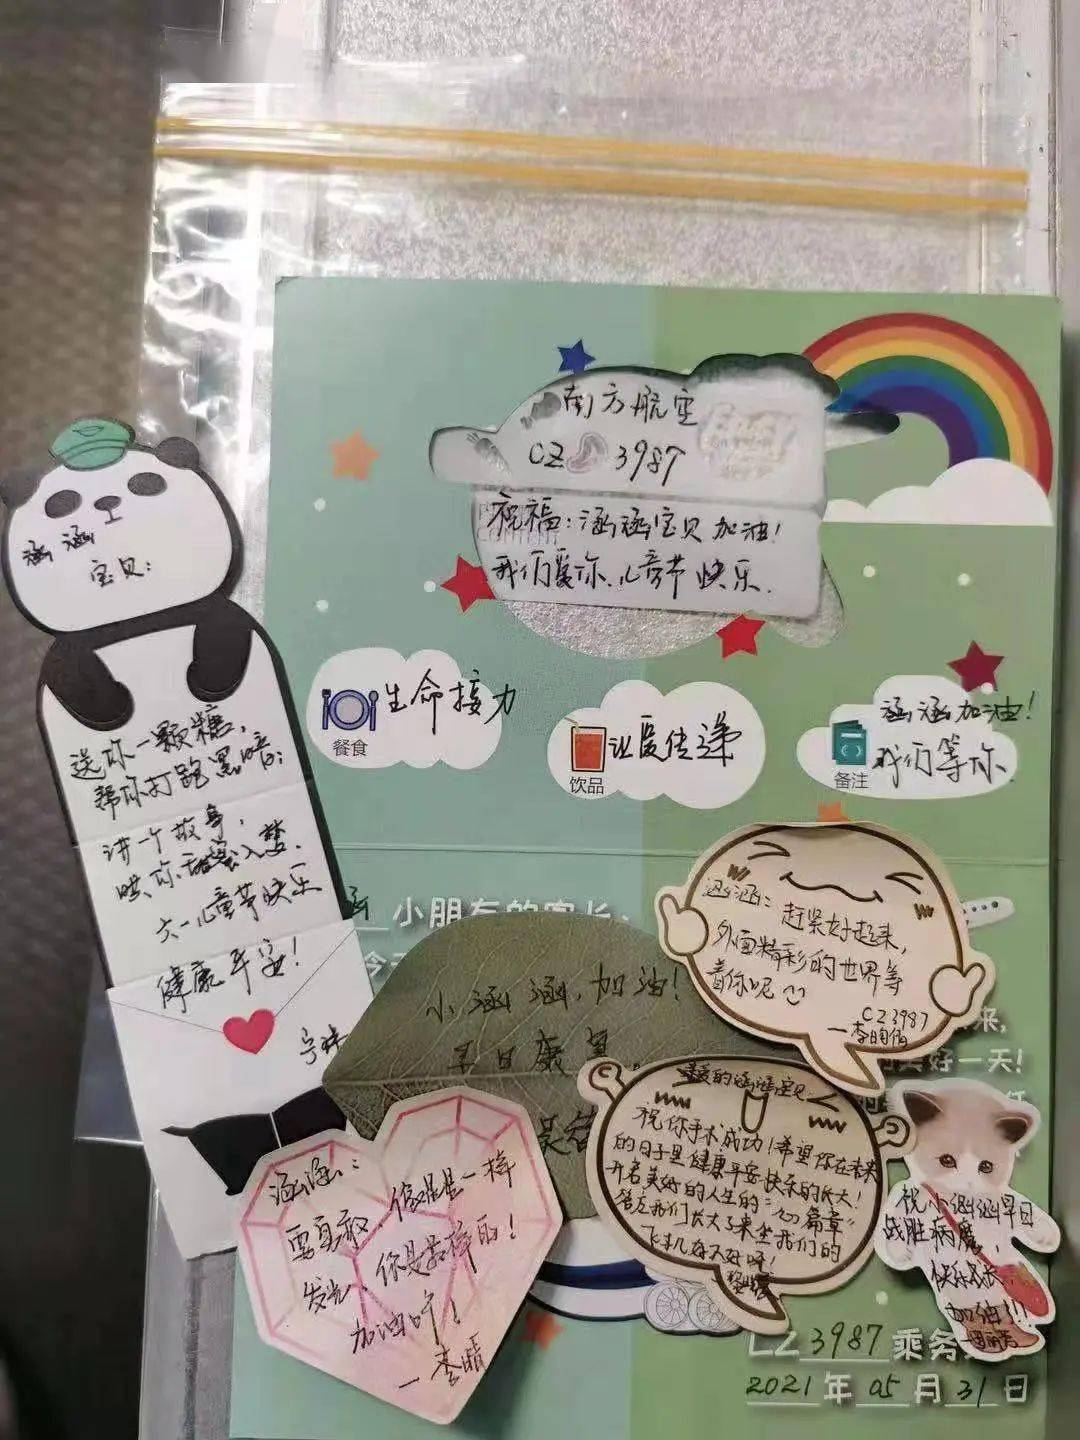 南方航空
CZ 3987
祝福：涵涵宝贝加油！
我们爱你.儿童节快乐.
生命接力
餐食
让爱传递
饮品
涵涵加油！
我们等你
备注
涵涵
宝贝：
送你一颗糖，
帮你打跑黑暗；
讲一个故事，
哄你甜蜜入梦.
六一儿童节快乐
健康平安！
涵 小朋友的家长：
今天
小涵涵,加油！
早日康复.
涵涵：赶紧好起来，
外面精彩的世界等
着你呢
CZ3987
来，
美好一天！
的涵涵宝贝
祝你手术成功！希望你在未来
的日子里健康平安快乐的长大！
开启美好的人生的"心篇章"
等左我们长大了来坐我们的
飞机好不好呀！
涵涵：
要勇敢，像星星一样
发光，你是最棒的！
加油吖！
—李晴
祝小涵涵早日
战胜病魔，
快乐成长，
加油!!
CZ 3987 乘务
2021 年 05 月 31 日